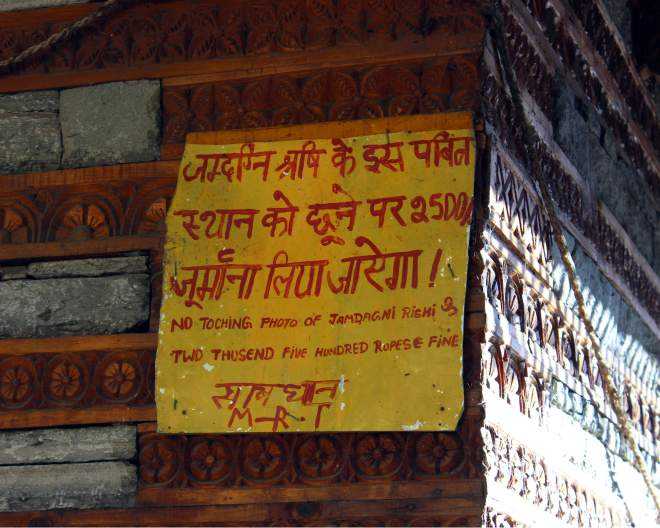 जमदग्नि ऋषि के इस पवित्र
स्थान को छूने पर २500/
जूर्माना लिया जारेगा!
NO TOCHING PHOTO OF JAMDAGNI RISHI
TWO THUSEND FIVE HUNDRED ROPESE FINE
साबधान
M-R-T